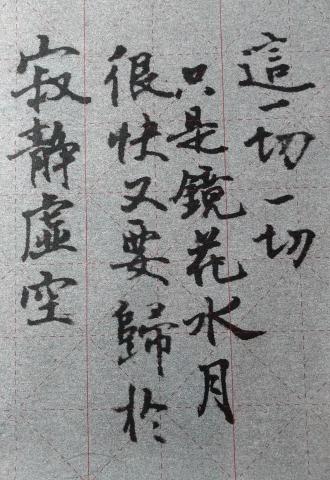 這一切一切
只是鏡花水月
很快又要歸於
寂靜虛空